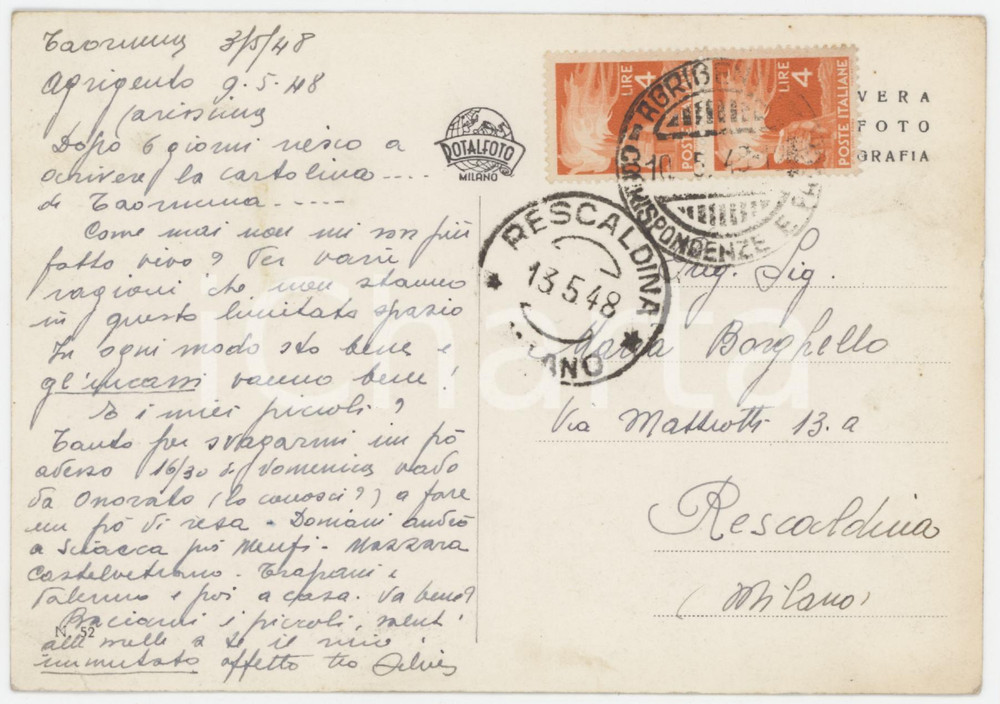 Taormina 3/5/48
Agrigento 9.5.48
Carissima
Dopo 6 giorni riesco a
scrivere la cartolina....
di Taormina.....
Come mai non mi son più
fatto vivo? Per varie
ragioni che non stanno
in questo limitato spazio
In ogni modo sto bene e
gl'incassi vanno bene!
E i miei piccoli?
Tanto per svagarmi un pò
adesso 16/30 di Domenica vado
da Onorato (lo conosci?) a fare
un pò di resa. Domani andrò
a Sciacca poi Menfi - Mazzara
Castelvetrano - Trapani e
Palermo e poi a casa. Va bene?
Baciami i piccoli,
alle mille a te il mio
immutato affetto tuo
N. 52
ROTALFOTO
MILANO
LIRE 4
POSTE ITALIANE
LIRE 4
POSTE ITALIANE
AGRIGENTO
CORRISPONDENZE E
10.5.48
VERA
FOTO
GRAFIA
RESCALDINA
13.5.48
MILANO
Sig.
Maria Borghello
Via Matteotti 13.a
Rescaldina
(Milano)
iCharta